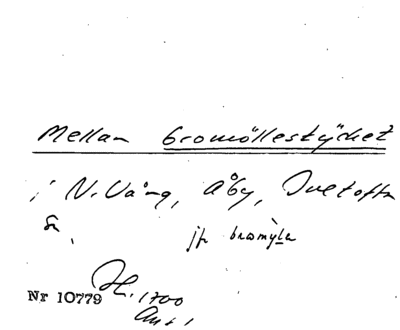 Mellan bromöllestycket
i N. Vång, Åby, Ivetofta
sn.
jfr bromỳla
Nr 10779 H. 1700